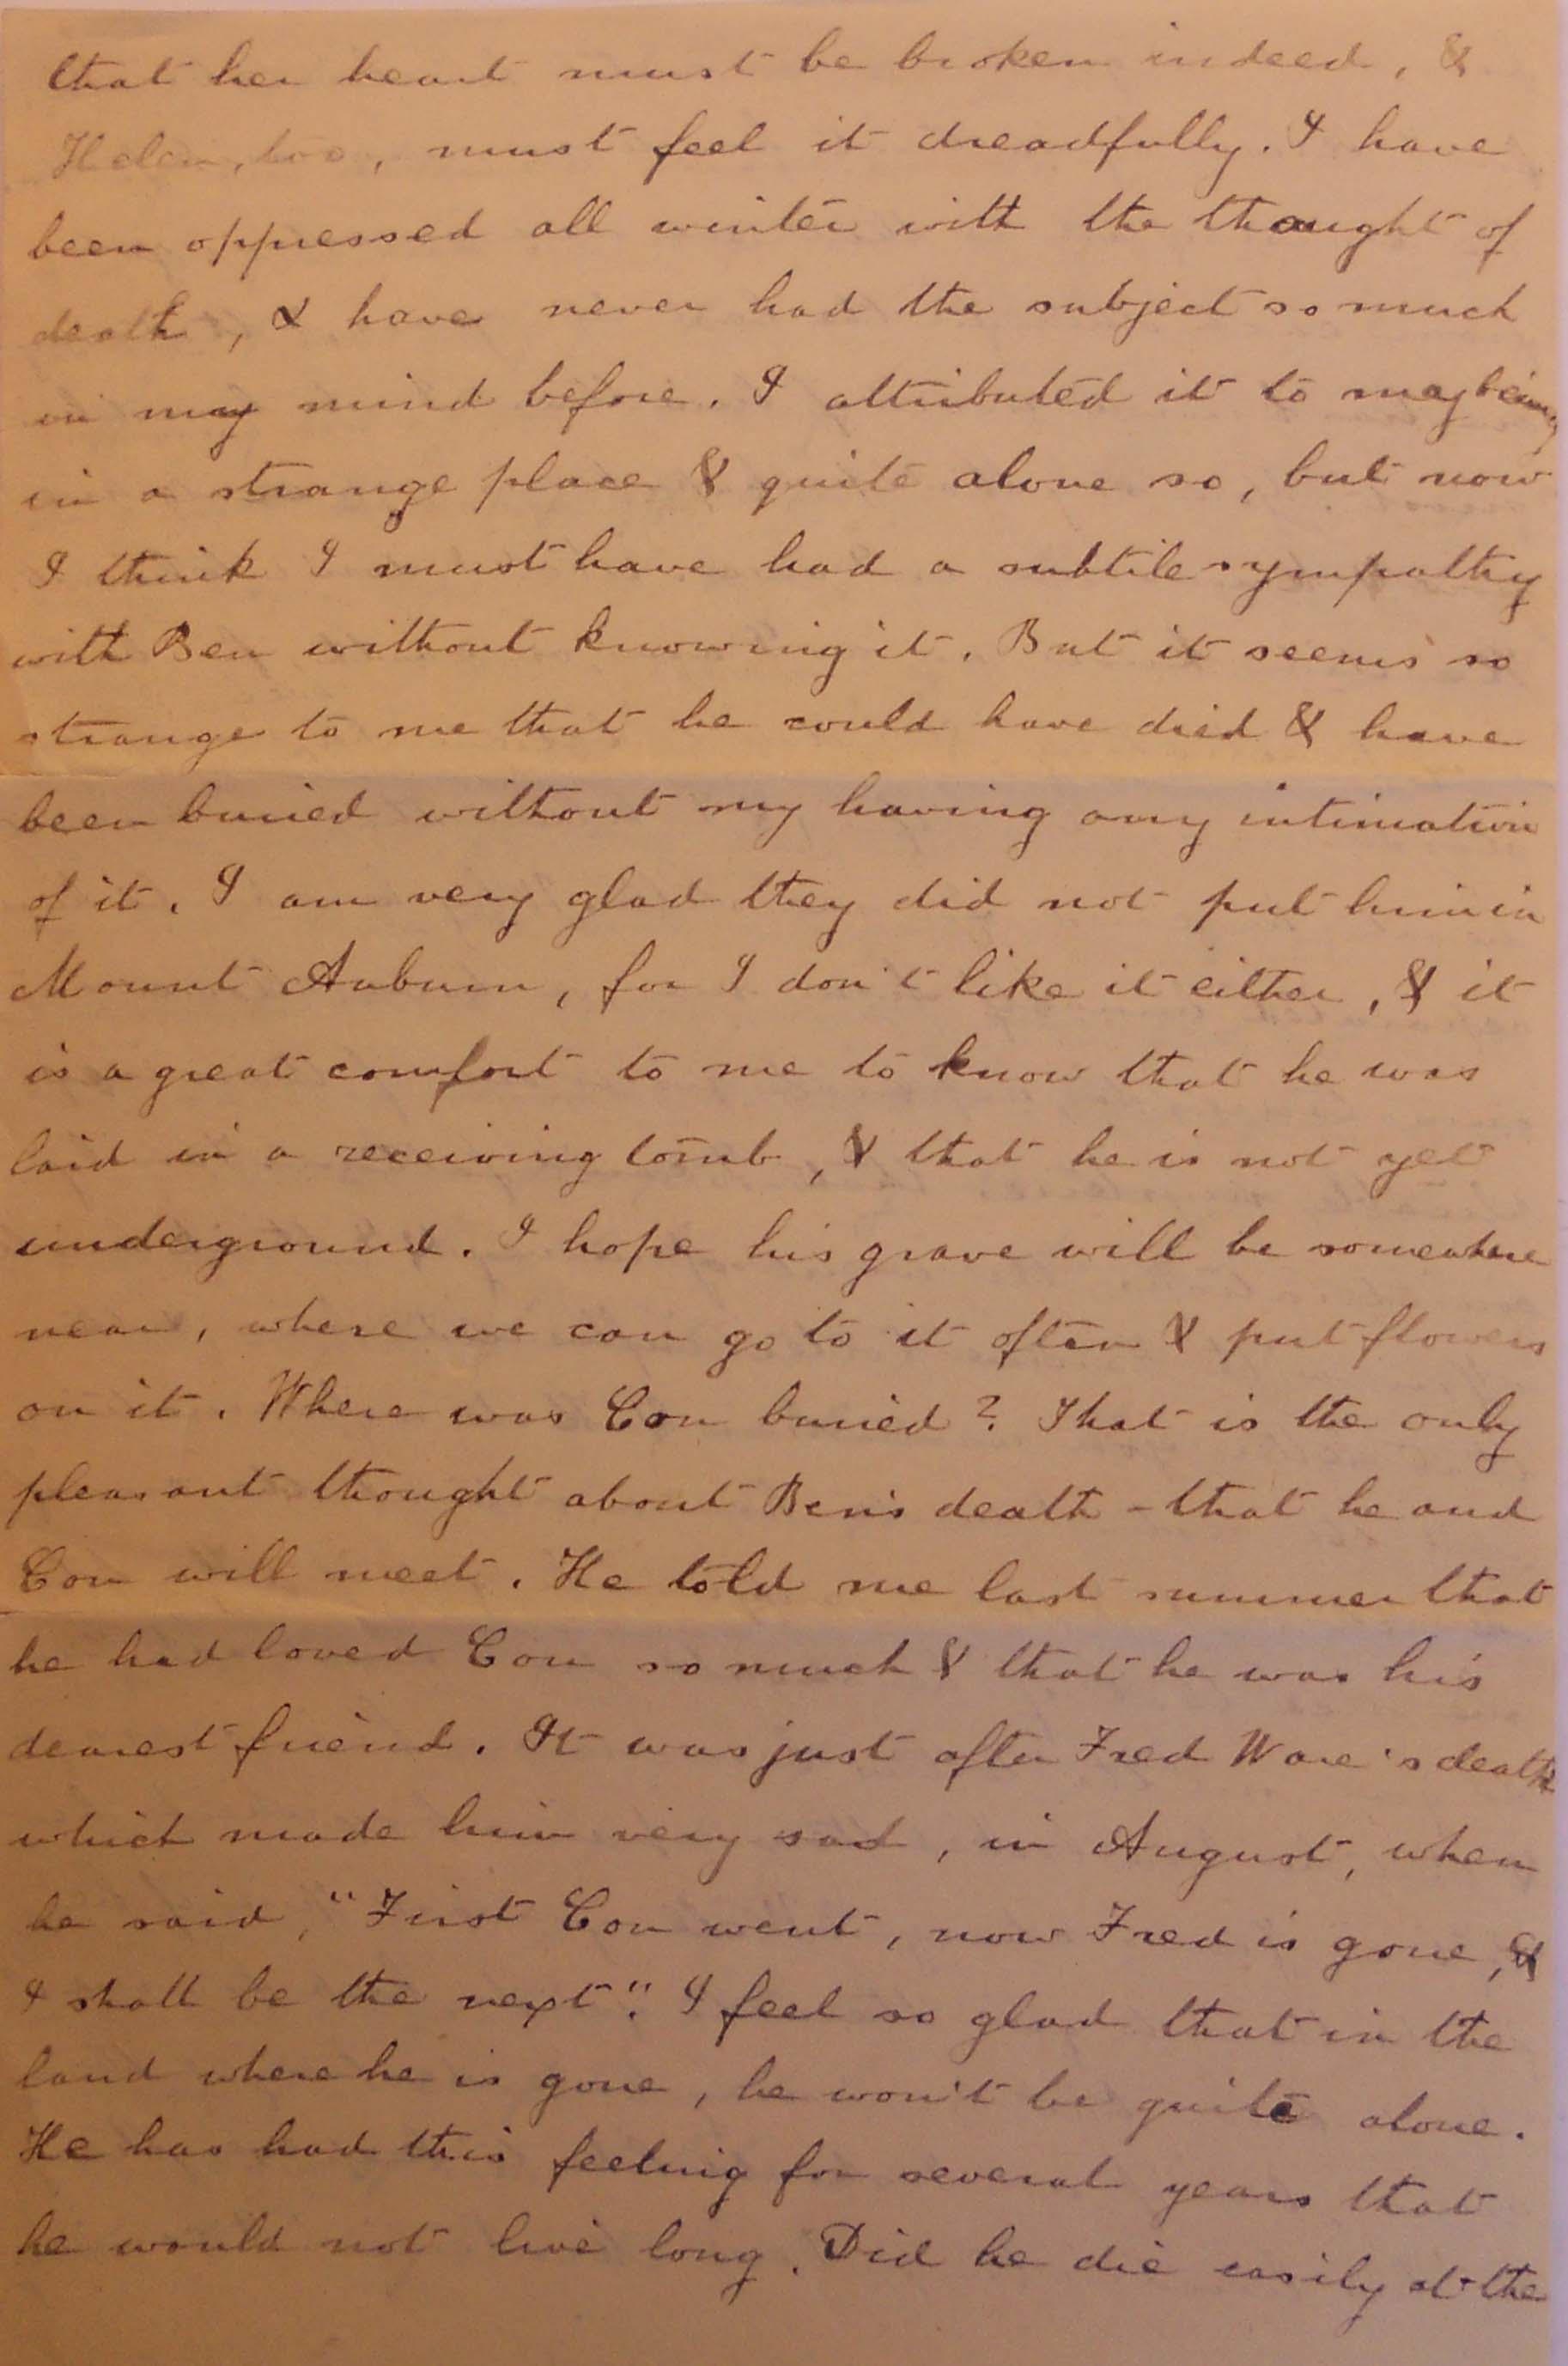 that her heart must be broken indeed, &
Helen, too, must feel it dreadfully. I have
been oppressed all winter with the thought of
death, & have never had the subject so much
in my mind before. I attributed it to my being
in a strange place & quite alone so, but now
I think I must have had a subtile sympathy
with Ben without knowing it. But it seems so
strange to me that he could have died & have
been buried without my having any intimation
of it. I am very glad they did not put him in
Mount Auburn, for I don't like it either, & it
is a great comfort to me to know that he was
laid in a receiving tomb, & that he is not yet
underground. I hope his grave will be somewhere
near, where we can go to it often & put flowers
on it. Where was Con buried? That is the only
pleasant thought about Ben's death - that he and
Con will meet. He told me last summer that
he had loved Con so much & that he was his
dearest friend. It was just after Fred Ware's death
which made him very sad, in August, when
he said, "First Con went, now Fred is gone, &
I shall be the next". I feel so glad that in the
land where he is gone, he won't be quite alone.
He has had this feeling for several years that
he would not live long. Did he die easily at the